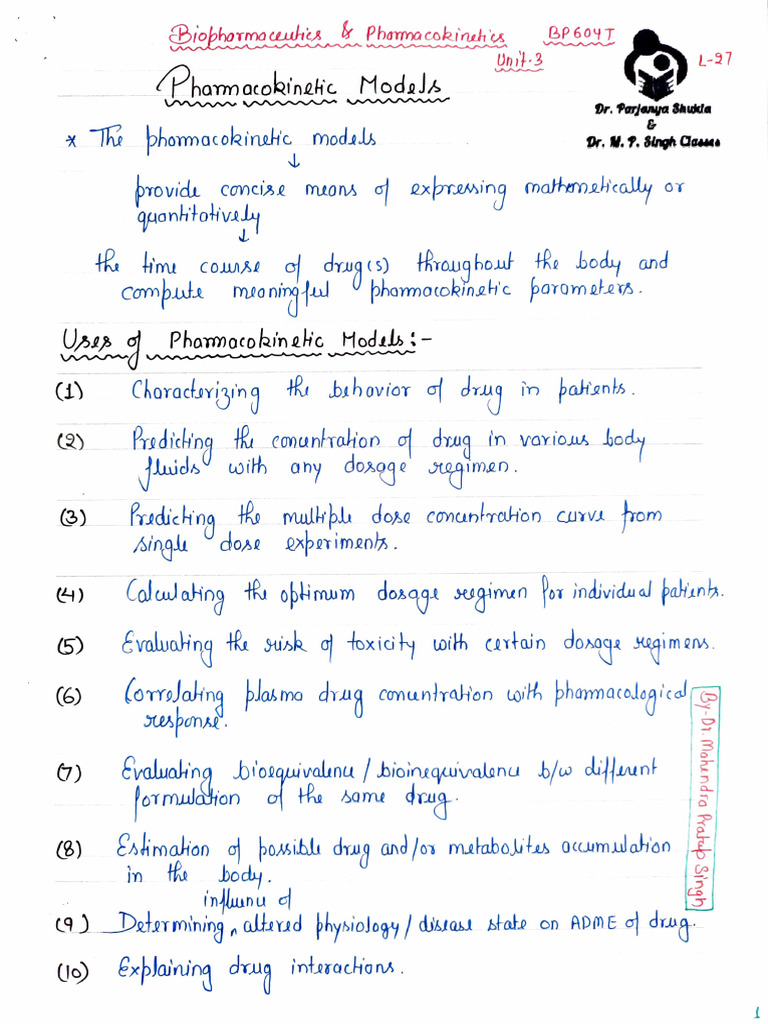 Biopharmaceutics & Pharmacokinetics BP604T
Unit-3
L-27
Pharmacokinetic Models
Dr. Parjanya Shukla
&
Dr. M. P. Singh Classes
* The pharmacokinetic models
↓
provide concise means of expressing mathematically or
quantitatively
↓
the time course of drug(s) throughout the body and
compute meaningful pharmacokinetic parameters.
Uses of Pharmacokinetic Models:-
(1) Characterizing the behavior of drug in patients.
(2) Predicting the concentration of drug in various body
fluids with any dosage regimen.
(3) Predicting the multiple dose concentration curve from
single dose experiments.
(4) Calculating the optimum dosage regimen for individual patients.
(5) Evaluating the risk of toxicity with certain dosage regimens.
(6) Correlating plasma drug concentration with pharmacological
response.
(7) Evaluating bioequivalence/bioinequivalence b/w different
formulation of the same drug.
(8) Estimation of possible drug and/or metabolites accumulation
in the body.
influence of
(9) Determining ^ altered physiology/disease state on ADME of drug.
(10) Explaining drug interactions.
By-Dr. Mahendra Pratap Singh
1